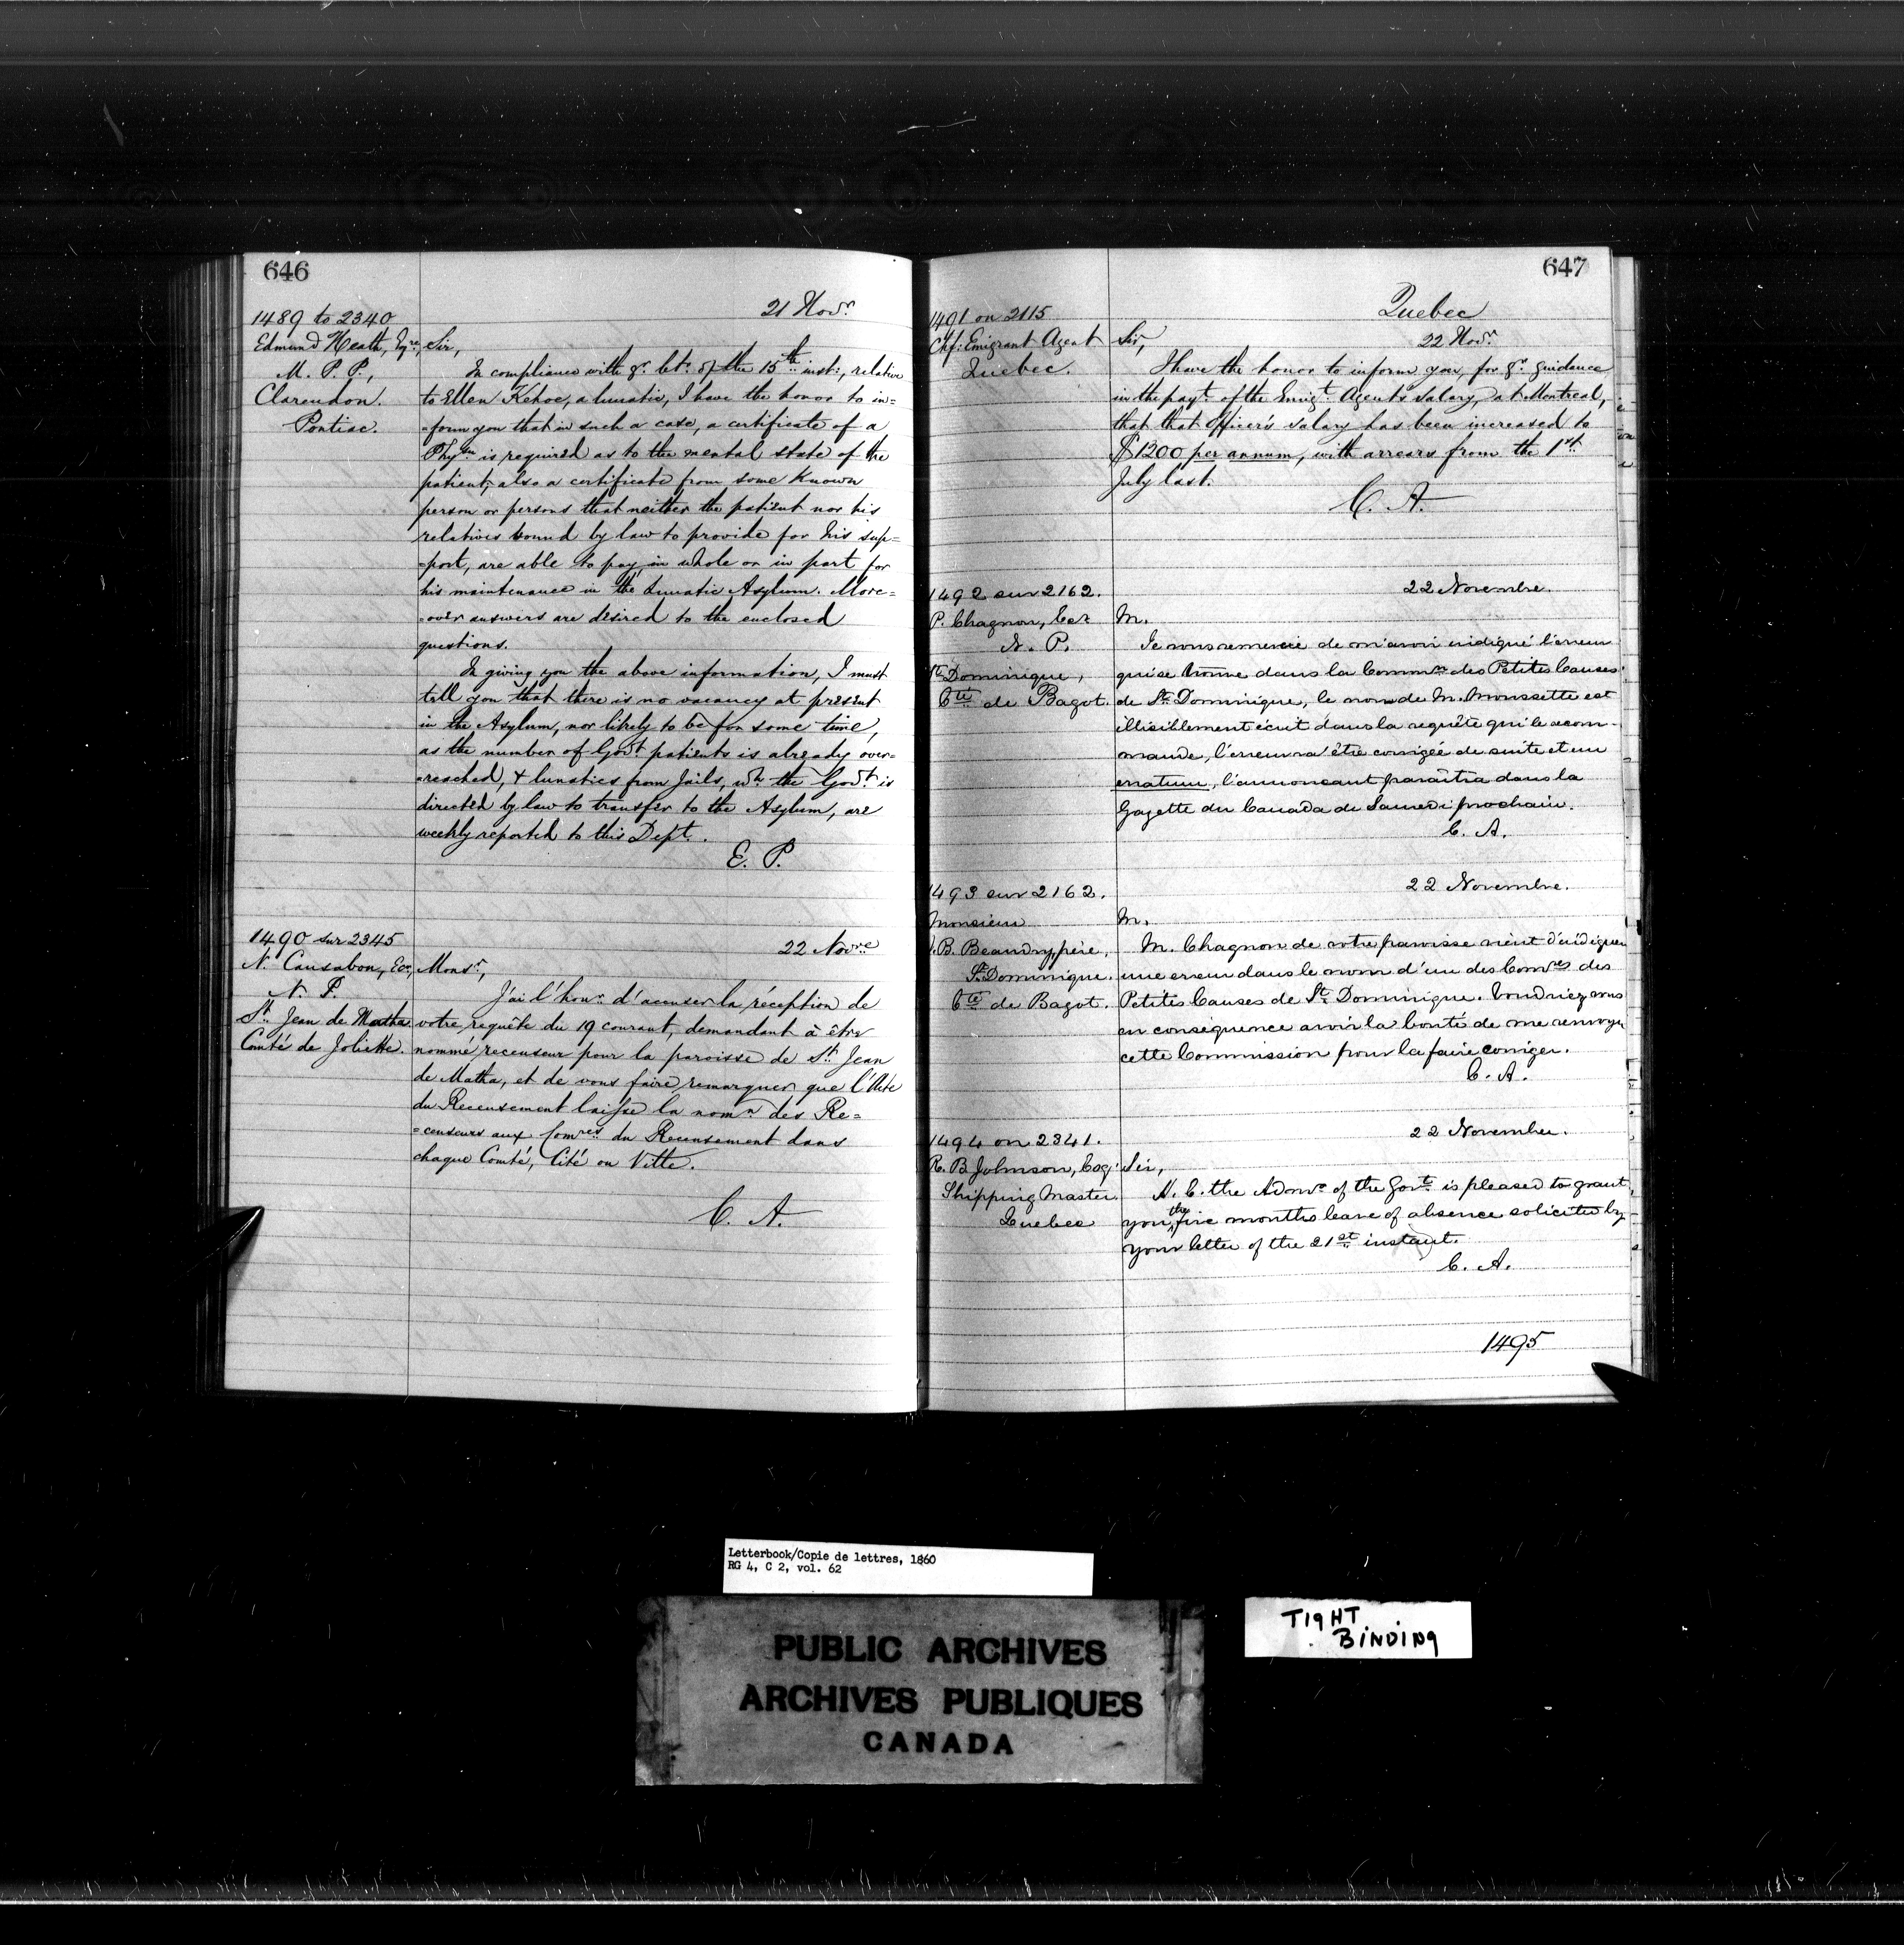 646
21 Novr.
1489 to 2340
Edmund Heath, Eqre,
M. P. P.,
Clarendon.
Pontiac.
Sir,
In compliance with yr. letr. of the 15th inst:, relative
to Ellen Kehoe, a lunatic, I have the honor to in=
=form you that in such a case, a certificate of a
Phyn is required as to the mental state of the
patient, also a certificate from some known
person or persons that neither the patient nor his
relatives bound by law to provide for his sup=
=port, are able to pay in whole or in part for
his maintenance in the Lunatic Asylum. More=
=over answers are desired to the enclosed
questions.
In giving you the above information, I must
tell you that there is no vacancy at present
in the Asylum, nor likely to be for some time,
as the number of Govt. patients is already over=
=reached, & lunatics from Jails, wh. the Govt. is
directed by law to transfer to the Asylum, are
weekly reported to this Dept.
E. P.
1490 sur 2345
N. Causabon, Ecr,
N. P.
St. Jean de Matha.
Comté de Joliette.
22 Novre
Monsr.,
J'ai l'honr. d'accuser la réception de
votre requête du 19 courant, demandant à être
nommé recenseur pour la paroisse de St. Jean
de Matha, et de vous faire remarquer que l'Acte
du Recensement laisse la nomn des Re=
=censeurs aux Comres du Recensement dans
chaque Comté, Cité ou Ville.
C. A.
647
Quebec
22 Novr.
1491 on 2115
Chf: Emigrant Agent
Quebec.
Sir,
I have the honor to inform you, for yr. guidance
in the payt. of the Emigt. Agent's salary at Montreal,
that that Officer's salary has been increased to
$1200 per annum, with arrears from the 1st
July last.
C. A.
22 Novembre.
1492 sur 2162.
P. Chagnon, Ecr
N. P.
St Dominique,
Cté de Bagot.
M.
Je vous remercie de m'avoir indiqué l'erreur
qui se trouve dans la Common des Petites Causes
de St. Dominique, le nom de M. Moussette est
illisiblement écrit dans la requête qui le recom-
mande, l'erreur va être corrigée de suite et un
erratum, l'annoncant paraîtra dans la
Gazette du Canada de Samedi prochain.
C. A.
22 Novembre.
1493 sur 2162.
Monsieur
J.B. Beaudry, père,
St. Dominique.
Cté de Bagot.
M.
M. Chagnon de votre paroisse vient d'indiquer
une erreur dans le nom d'un des Comres des
Petites Causes de St. Dominique. Voudriez vous
en conséquence avoir la bonté de me renvoyer
cette Commission pour la faire corriger.
C. A.
22 November.
1494 on 2341.
R. B. Johnson, Esq.
Shipping Master
Quebec
Sir,
H. E. the Admr. of the Govt. is pleased to grant
you the five months leave of absence solicited by
your letter of the 21st instant.
C. A.
1495
Letterbook/Copie de lettres, 1860
RG 4, C 2, vol. 62
PUBLIC ARCHIVES
ARCHIVES PUBLIQUES
CANADA
TIGHT
BINDING